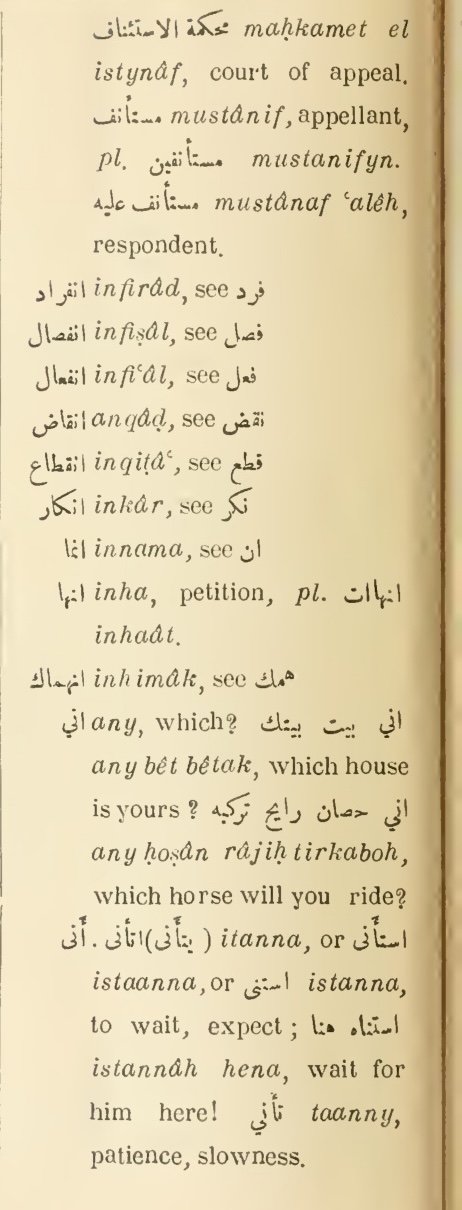 محكمة الاستئناف maḥkamet el
istynâf, court of appeal.
مستأنف mustânif, appellant,
pl. مستأنفين mustanifyn.
مستأنف عليه mustânaf ʿalêh,
respondent.
انفراد infirâd, see فرد
انفصال infiṣâl, see فصل
انفعال infiʿâl, see فعل
انقاض anqâḍ, see نقض
انقطاع inqiṭâʿ, see قطع
انكار inkâr, see نكر
انما innama, see ان
انها inha, petition, pl. انهاات
inhaât.
انهماك inhimâk, see همك
اني any, which? اني بيت بيتك
any bêt bêtak, which house
is yours? اني حصان رايح تركبه
any ḥoṣân râjiḥ tirkaboh,
which horse will you ride?
أنى . اتأنى (يتأنى) itanna, or استأنى
istaanna, or استنى istanna,
to wait, expect; استناه هنا
istannâh hena, wait for
him here! تأني taanny,
patience, slowness.